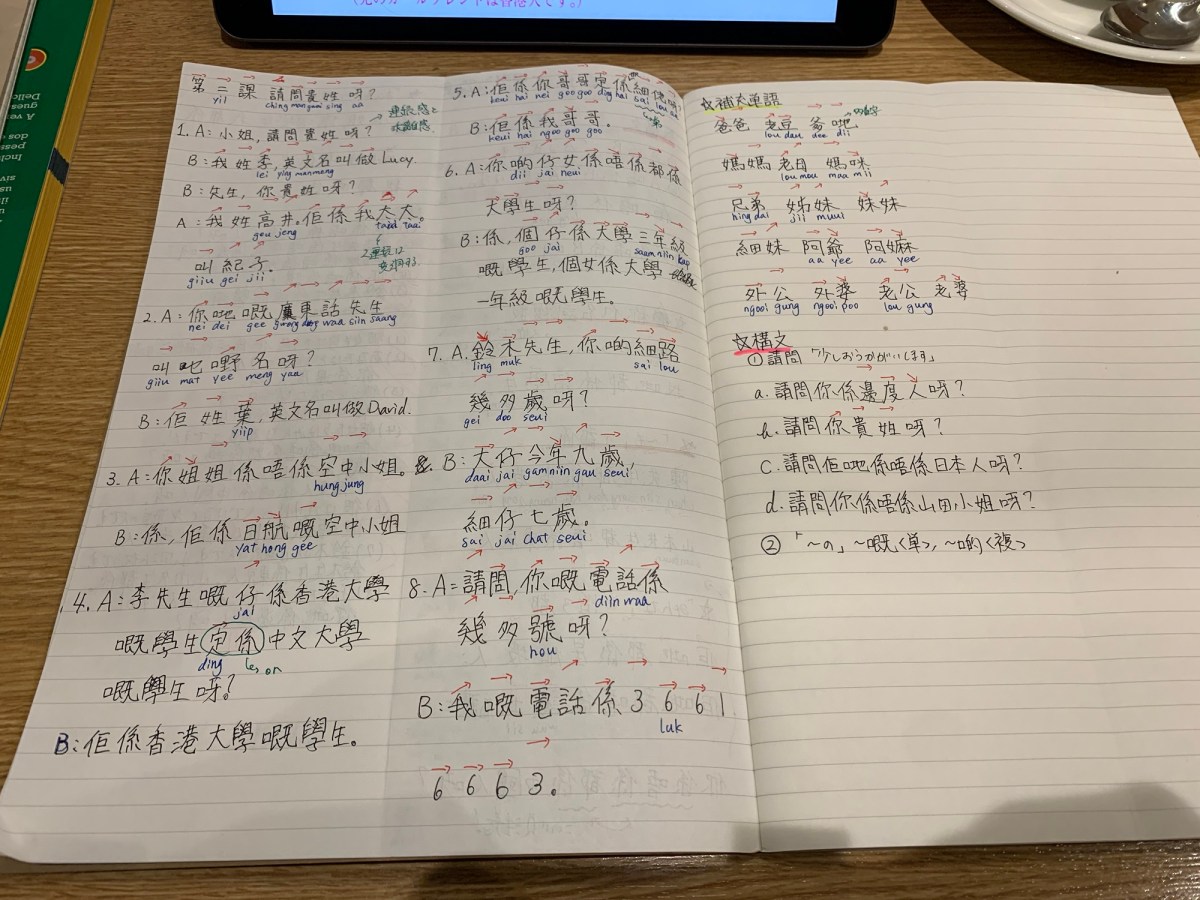 第二課 請問貴姓呀?
yii ching man gwai sing aa
1. A: 小姐, 請問貴姓呀?
B: 我姓李, 英文名叫做 Lucy.
lei ying manmeng
B: 先生, 你貴姓呀?
A: 我姓高井。佢係我太太。
gou jeng taai taai
叫紀子。
giiu gei jii
2. A: 你哋嘅廣東話先生
nei dei gee gwong dong waa siin saang
叫乜嘢名呀?
giiu mat yee meng yaa
B: 佢姓葉, 英文名叫做David.
yiip
3. A: 你姐姐係唔係空中小姐。
hung jung
B: 係, 佢係日航嘅空中小姐
yat hong gee
4. A: 李先生嘅仔係香港大學
jai
嘅學生定係中文大學
ding or
嘅學生呀?
B: 佢係香港大學嘅學生。
5. A: 佢係你哥哥定係細佬呀?
keui hai nei goo goo ding hai sai lou aa
B: 佢係我哥哥。
keui hai ngoo goo goo
6. A: 你啲仔女係唔係都係
dii jai neui
大學生呀?
B: 係, 個仔係大學三年級
goo jai saam niin kap
嘅學生, 個女係大學
一年級嘅學生。
7. A. 鈴木先生, 你啲細路
ling muk sai lou
幾多歲呀?
gei doo seui
B: 大仔今年九歲,
daai jai gamniin gau seui
細仔七歲。
sai jai chat seui
8. A= 請問, 你嘅電話係
diin waa
幾多號呀?
hou
B: 我嘅電話係 3 6 6 1
luk
6 6 6 3。
☆補大単語
爸爸 老豆 爹哋
lou dau dee dii
媽媽 老母 媽咪
lou mou maa mii
兄弟 姊妹 妹妹
hing dai jii muui
細妹 阿爺 阿嫲
aa yee aa yee
外公 外婆 老公 老婆
ngooi gung ngooi poo lou gung
☆構文
① 請問「少しおうかがいします」
a. 請問你係邊度人呀?
b. 請問你貴姓呀?
c. 請問佢哋係唔係日本人呀?
d. 請問你係唔係山田小姐呀?
② 「~の」~嘅<単>, ~啲<複>